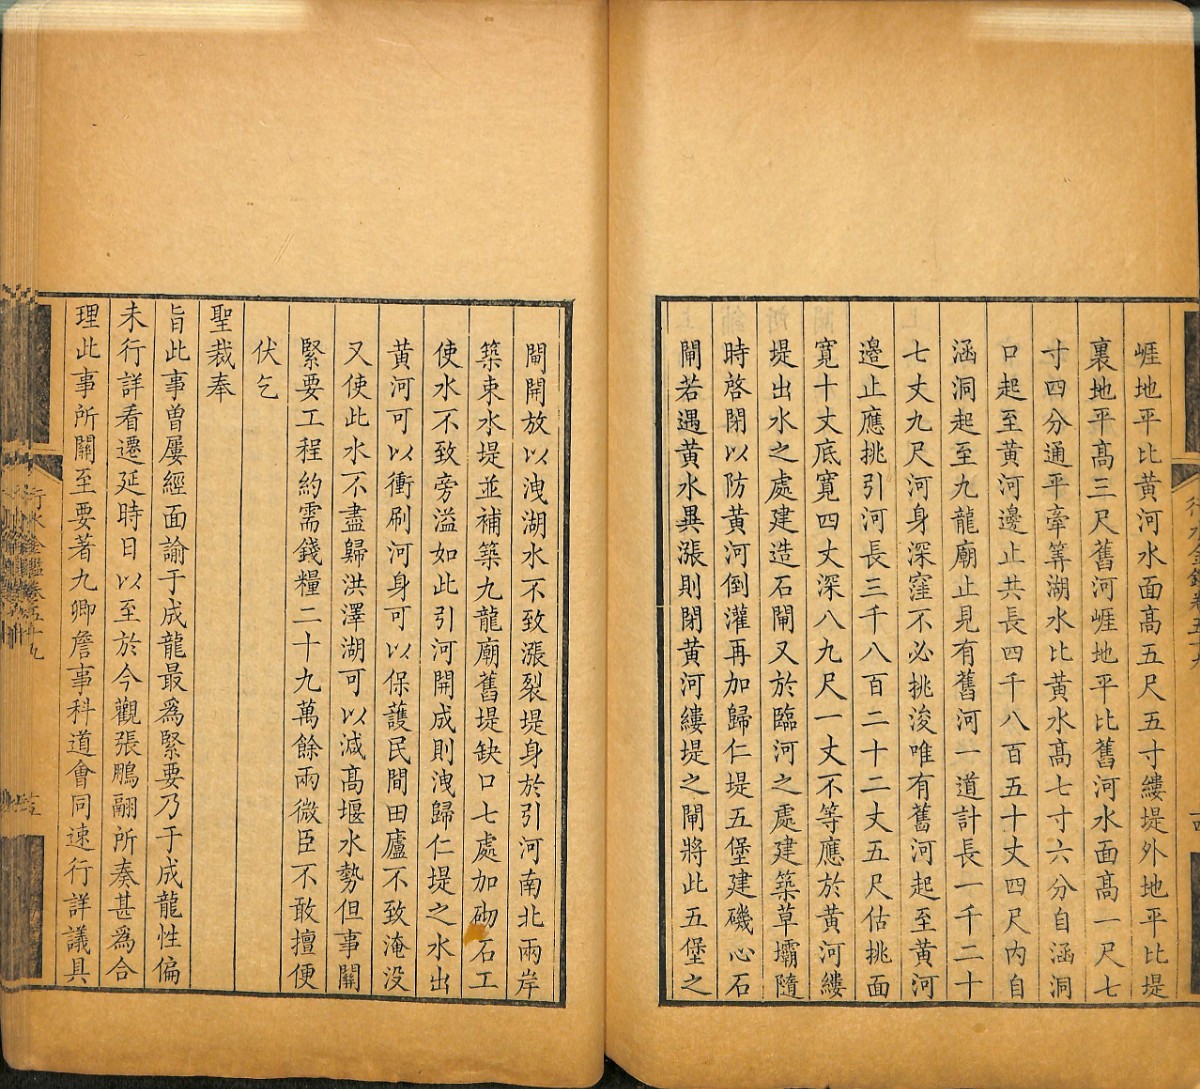 崕地平比黄河水面高五尺五寸縷堤外地平比堤
裏地平高三尺舊河崕地平比舊河水面高一尺七
寸四分通平牽筭湖水比黄水高七寸六分自涵洞
口起至黄河邊止共長四千八百五十丈四尺內自
涵洞起至九龍廟止見有舊河一道計長一千二十
七丈九尺河身深窪不必挑浚唯有舊河起至黄河
邊止應挑引河長三千八百二十二丈五尺估挑面
寛十丈底寛四丈深八九尺一丈不等應於黄河縷
堤出水之處建造石閘又於臨河之處建築草壩隨
時啓閉以防黄河倒灌再加歸仁堤五堡建磯心石
閘若遇黄水異漲則閉黄河縷堤之閘將此五堡之
閘開放以洩湖水不致漲裂堤身於引河南北兩岸
築束水堤並補築九龍廟舊堤缺口七處加砌石工
使水不致旁溢如此引河開成則洩歸仁堤之水出
黄河可以衝刷河身可以保護民間田廬不致淹没
又使此水不盡歸洪澤湖可以减高堰水勢但事關
緊要工程約需錢糧二十九萬餘兩微臣不敢擅便
伏乞
聖裁奉
旨此事曾屢經面諭于成龍最爲緊要乃于成龍性偏
未行詳看遷延時日以至於今觀張鵬翮所奏甚爲合
理此事所關至要著九卿詹事科道會同速行詳議具
行水金鑑卷五十九